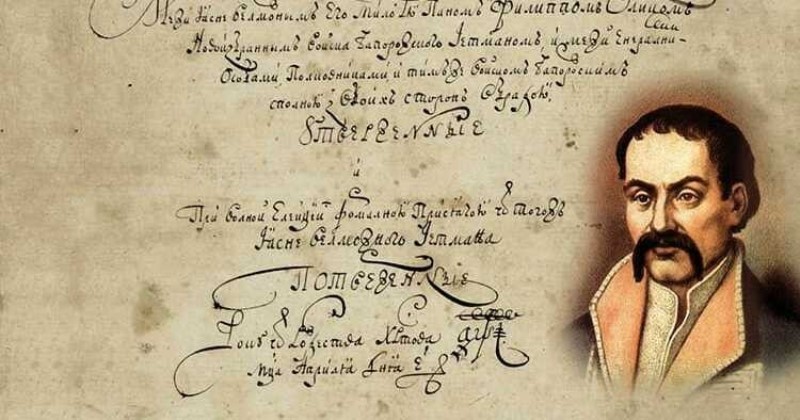 Межи Ясне велможнымъ Его Млстю Паномъ Филиппомъ Орликомъ
Новоизбраннымъ Войска Запорожского Гетманомъ, и межи Енералними
Особами, Полковниками и тимже Войскомъ Запорожскимъ
сполною з обоихъ сторонъ обрадою
Утверженные
и
При волной Елекцыи формалною Присягою
Ясне велможного Гетмана
Потверженные
Року Рожества Христова
мца Априля дня е҃